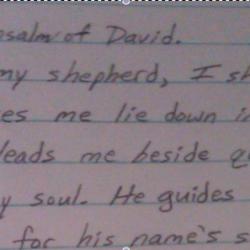 psalm of David.
my shepherd, I sh
es me lie down in
leads me beside qu
y soul. He guides
for his name's s